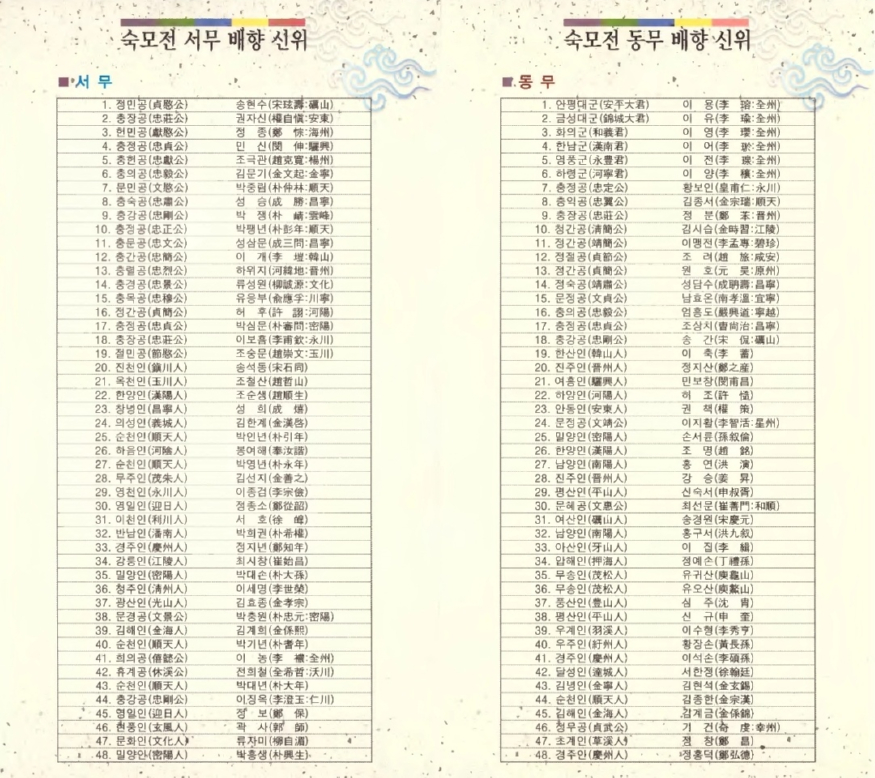 숙모전 서무 배향 신위
서 무
1. 정민공(貞愍公) 송현수(宋玹壽:礪山)
2. 충장공(忠莊公) 권자신(權自愼:安東)
3. 헌민공(獻愍公) 정 종(鄭 悰:海州)
4. 충정공(忠貞公) 민 신(閔 伸:驪興)
5. 충헌공(忠獻公) 조극관(趙克寬:楊州)
6. 충의공(忠毅公) 김문기(金文起:金寧)
7. 문민공(文愍公) 박중림(朴仲林:順天)
8. 충숙공(忠肅公) 성 승(成 勝:昌寧)
9. 충강공(忠剛公) 박 쟁(朴 崝:雲峰)
10. 충정공(忠正公) 박팽년(朴彭年:順天)
11. 충문공(忠文公) 성삼문(成三問:昌寧)
12. 충간공(忠簡公) 이 개(李 塏:韓山)
13. 충렬공(忠烈公) 하위지(河緯地:晋州)
14. 충경공(忠景公) 류성원(柳誠源:文化)
15. 충목공(忠穆公) 유응부(兪應孚:川寧)
16. 정간공(貞簡公) 허 후(許 詡:河陽)
17. 충정공(忠貞公) 박심문(朴審問:密陽)
18. 충장공(忠莊公) 이보흠(李甫欽:永川)
19. 절민공(節愍公) 조숭문(趙崇文:玉川)
20. 진천인(鎭川人) 송석동(宋石同)
21. 옥천인(玉川人) 조철산(趙哲山)
22. 한양인(漢陽人) 조순생(趙順生)
23. 창녕인(昌寧人) 성 희(成 熺)
24. 의성인(義城人) 김한계(金漢啓)
25. 순천인(順天人) 박인년(朴引年)
26. 하음인(河陰人) 봉여해(奉汝諧)
27. 순천인(順天人) 박영년(朴永年)
28. 무주인(茂朱人) 김선지(金善之)
29. 영천인(永川人) 이종검(李宗儉)
30. 영일인(迎日人) 정종소(鄭從韶)
31. 이천인(利川人) 서 호(徐 )
32. 반남인(潘南人) 박희권(朴希權)
33. 경주인(慶州人) 정지년(鄭知年)
34. 강릉인(江陵人) 최시창(崔始昌)
35. 밀양인(密陽人) 박대손(朴大孫)
36. 청주인(淸州人) 이세명(李世榮)
37. 광산인(光山人) 김효종(金孝宗)
38. 문경공(文景公) 박충원(朴忠元:密陽)
39. 김해인(金海人) 김계희(金係熙)
40. 순천인(順天人) 박기년(朴耆年)
41. 희의공(僖懿公) 이 농(李 :全州)
42. 휴계공(休溪公) 전희철(全希哲:沃川)
43. 순천인(順天人) 박대년(朴大年)
44. 충강공(忠剛公) 이징옥(李澄玉:仁川)
45. 영일인(迎日人) 정 보(鄭 保)
46. 현풍인(玄風人) 곽 사(郭 師)
47. 문화인(文化人) 류자미(柳自湄)
48. 밀양인(密陽人) 박흥생(朴興生)
숙모전 동무 배향 신위
동 무
1. 안평대군(安平大君) 이 용(李 瑢:全州)
2. 금성대군(錦城大君) 이 유(李 瑜:全州)
3. 화의군(和義君) 이 영(李 瓔:全州)
4. 한남군(漢南君) 이 어(李 :全州)
5. 영풍군(永豊君) 이 전(李 瑔:全州)
6. 하령군(河寧君) 이 양(李 穰:全州)
7. 충정공(忠定公) 황보인(皇甫仁:永川)
8. 충익공(忠翼公) 김종서(金宗瑞:順天)
9. 충장공(忠莊公) 정 분(鄭 苯:晋州)
10. 청간공(淸簡公) 김시습(金時習:江陵)
11. 정간공(靖簡公) 이맹전(李孟專:碧珍)
12. 정절공(貞節公) 조 려(趙 旅:咸安)
13. 정간공(貞簡公) 원 호(元 昊:原州)
14. 정숙공(靖肅公) 성담수(成聃壽:昌寧)
15. 문정공(文貞公) 남효온(南孝溫:宜寧)
16. 충의공(忠毅公) 엄흥도(嚴興道:寧越)
17. 충정공(忠貞公) 조상치(曺尙治:昌寧)
18. 충강공(忠剛公) 송 간(宋 侃:礪山)
19. 한산인(韓山人) 이 축(李 蓄)
20. 진주인(晉州人) 정지산(鄭之産)
21. 여흥인(驪興人) 민보창(閔甫昌)
22. 하양인(河陽人) 허 조(許 慥)
23. 안동인(安東人) 권 책(權 策)
24. 문정공(文靖公) 이지활(李智活:星州)
25. 밀양인(密陽人) 손서륜(孫叙倫)
26. 한양인(漢陽人) 조 명(趙 銘)
27. 남양인(南陽人) 홍 연(洪 演)
28. 진주인(晉州人) 강 승(姜 昇)
29. 평산인(平山人) 신숙서(申叔胥)
30. 문혜공(文惠公) 최선문(崔善門:和順)
31. 여산인(礪山人) 송경원(宋慶元)
32. 남양인(南陽人) 홍구서(洪九叙)
33. 아산인(牙山人) 이 집(李 緝)
34. 압해인(押海人) 정예손(丁禮孫)
35. 무송인(茂松人) 유귀산(庾龜山)
36. 무송인(茂松人) 유오산(庾鰲山)
37. 풍산인(豊山人) 심 주(沈 )
38. 평산인(平山人) 신 규(申 奎)
39. 우계인(羽溪人) 이수형(李秀亨)
40. 우주인(紆州人) 황장손(黃長孫)
41. 경주인(慶州人) 이석손(李碩孫)
42. 달성인(達城人) 서한정(徐翰廷)
43. 김녕인(金寧人) 김현석(金玄錫)
44. 순천인(順天人) 김종한(金宗漢)
45. 김해인(金海人) 김계금(金係錦)
46. 정무공(貞武公) 기 건(奇 虔:幸州)
47. 초계인(草溪人) 정 창(鄭 昌)
48. 경주인(慶州人) 정홍덕(鄭弘德)